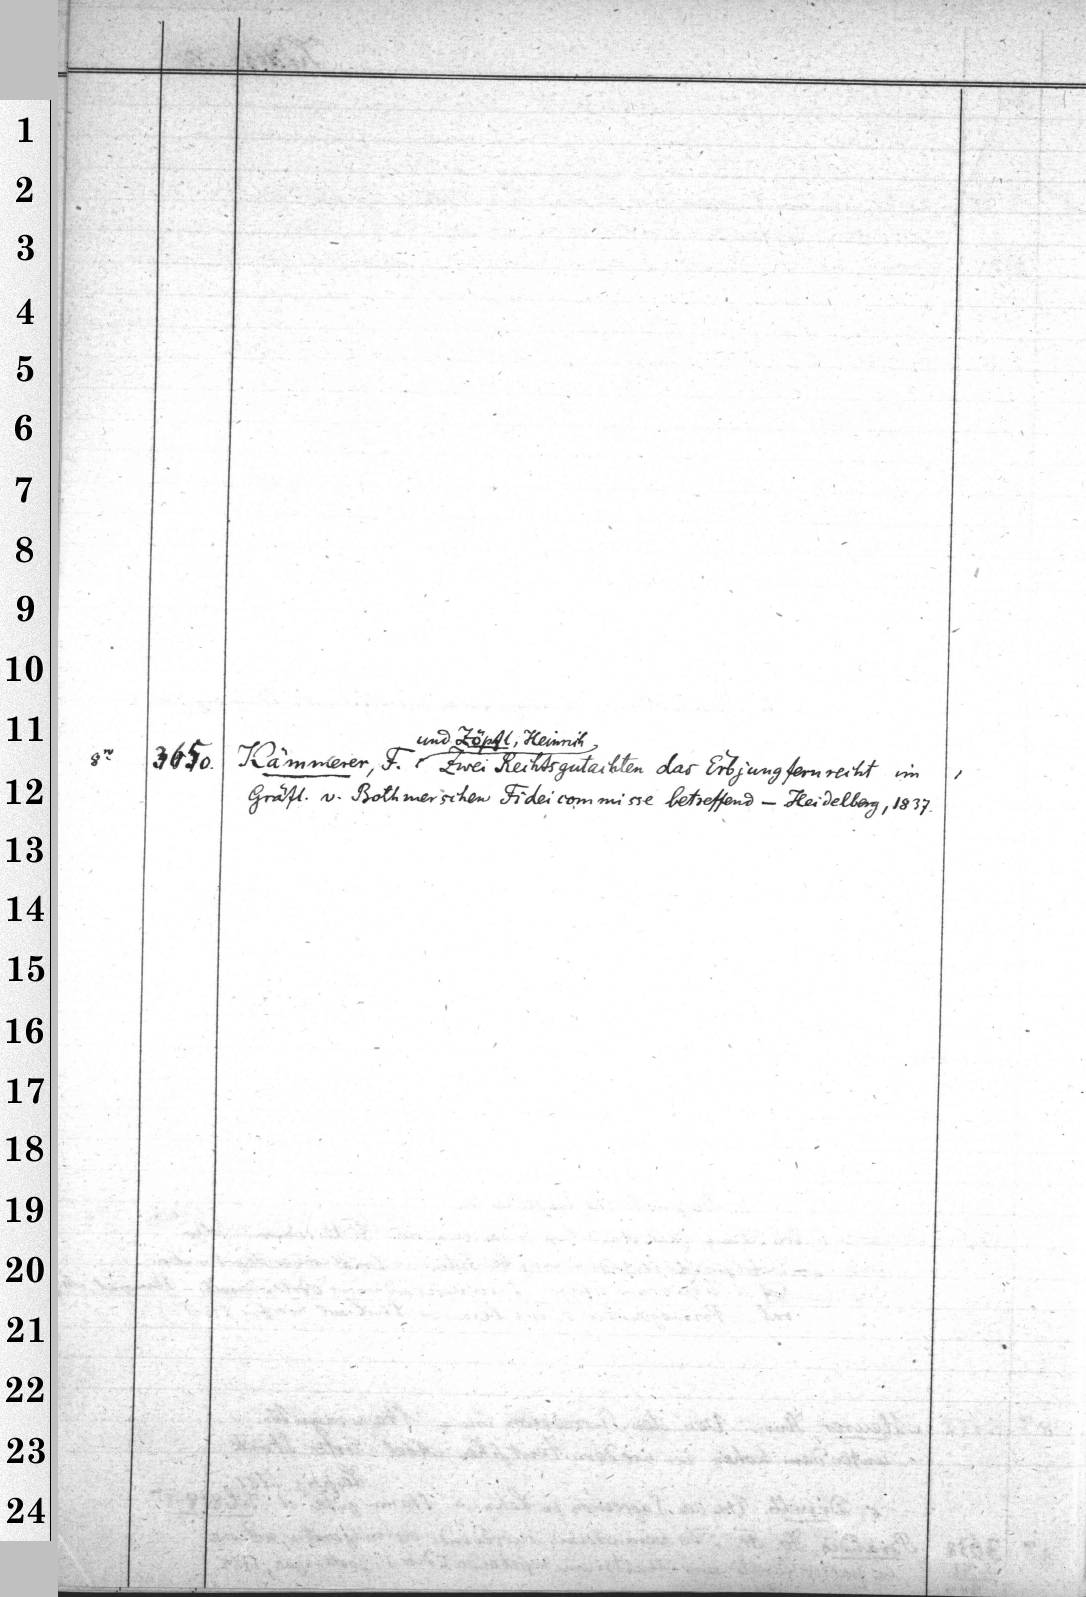 1
2
3
4
5
6
7
8
9
10
11
und Zöpfl, Heinrich
8º 3650. Kämmerer, F. Zwei Rechtsgutachten das Erbjungfernrecht im
12
Gräfl. v. Bothmerschen Fideicommisse betreffend – Heidelberg, 1837.
13
14
15
16
17
18
19
20
21
22
23
24